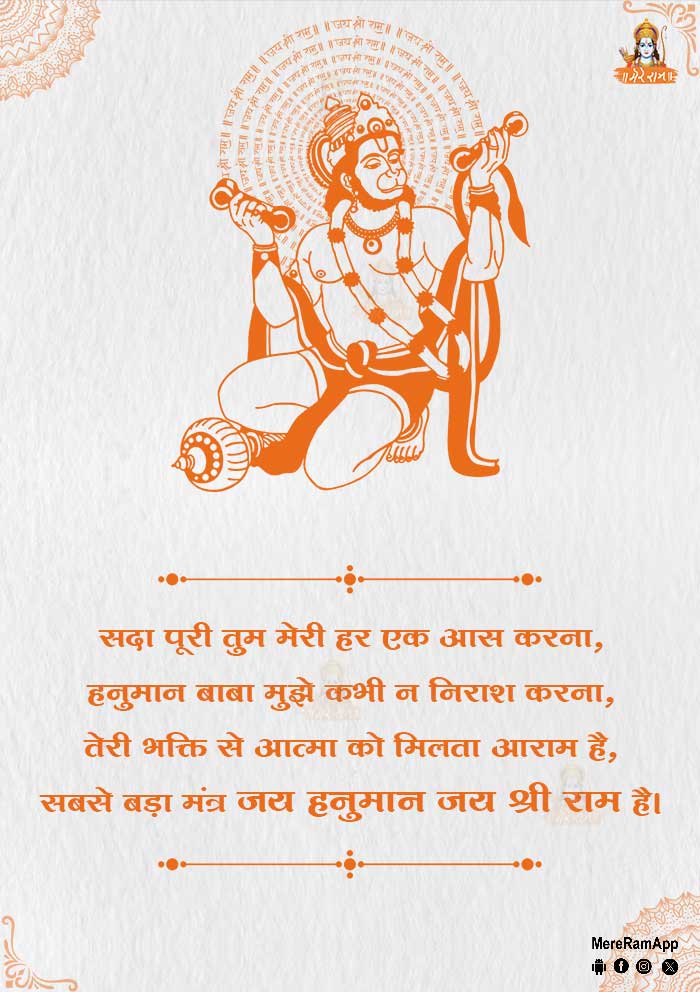 ॥ जय श्री राम॥ ॥ जय श्री राम॥ ॥ जय श्री राम॥
॥मेरे राम॥
सदा पूरी तुम मेरी हर एक आस करना,
हनुमान बाबा मुझे कभी न निराश करना,
तेरी भक्ति से आत्मा को मिलता आराम है,
सबसे बड़ा मंत्र जय हनुमान जय श्री राम है।
MereRamApp